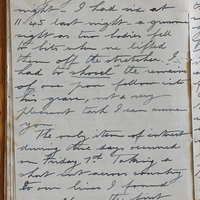 night. I had six at
11-45 last night a gruesome
sight as two bodies fell
to bits when we lifted
them off the stretcher. I
had to shovel the remains
of one poor fellow into
his grave, not a very
pleasant task I can assure
you.
The only item of interest
during this day occurred
on Friday 7th Taking a
short cut across country
to our lines I found
the first